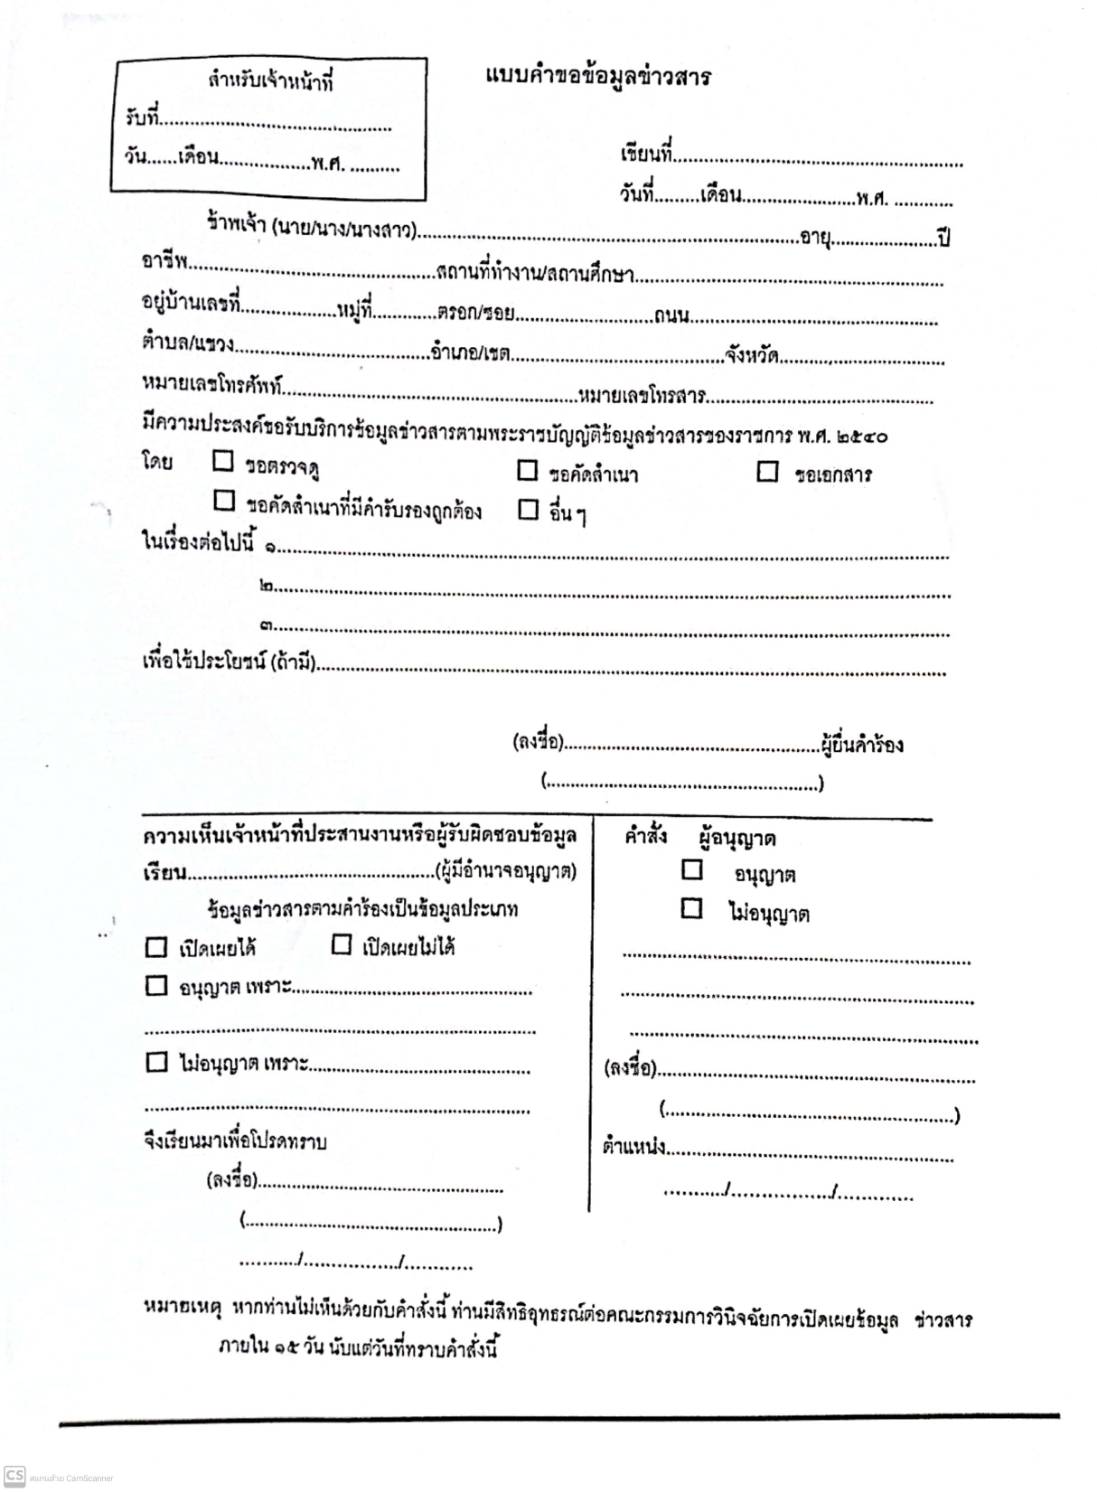 สำหรับเจ้าหน้าที่
รับที่............................................
วัน......เดือน..................พ.ศ. ..........
แบบคำขอข้อมูลข่าวสาร
เขียนที่.........................................................
วันที่.........เดือน......................พ.ศ. ............
ข้าพเจ้า (นาย/นาง/นางสาว)...........................................................................อายุ.....................ปี
อาชีพ................................................สถานที่ทำงาน/สถานศึกษา............................................................
อยู่บ้านเลขที่...................หมู่ที่.............ตรอก/ซอย...........................ถนน.................................................
ตำบล/แขวง......................................อำเภอ/เขต..........................................จังหวัด................................
หมายเลขโทรศัพท์..........................................................หมายเลขโทรสาร.............................................
มีความประสงค์ขอรับบริการข้อมูลข่าวสารตามพระราชบัญญัติข้อมูลข่าวสารของราชการ พ.ศ. ๒๕๔๐
โดย ☐ ขอตรวจดู ☐ ขอคัดสำเนา ☐ ขอเอกสาร
☐ ขอคัดสำเนาที่มีคำรับรองถูกต้อง ☐ อื่น ๆ
ในเรื่องต่อไปนี้ ๑....................................................................................................................
๒....................................................................................................................
๓....................................................................................................................
เพื่อใช้ประโยชน์ (ถ้ามี)............................................................................................................
(ลงชื่อ)..................................................ผู้ยื่นคำร้อง
(......................................................)
ความเห็นเจ้าหน้าที่ประสานงานหรือผู้รับผิดชอบข้อมูล
เรียน................................................(ผู้มีอำนาจอนุญาต)
ข้อมูลข่าวสารตามคำร้องเป็นข้อมูลประเภท
☐ เปิดเผยได้ ☐ เปิดเผยไม่ได้
☐ อนุญาต เพราะ...............................................
.............................................................................
☐ ไม่อนุญาต เพราะ...........................................
.............................................................................
จึงเรียนมาเพื่อโปรดทราบ
(ลงชื่อ)................................................
(.................................................)
.........../.................../..............
คำสั่ง ผู้อนุญาต
☐ อนุญาต
☐ ไม่อนุญาต
....................................................................
....................................................................
....................................................................
(ลงชื่อ)..............................................................
(.........................................................)
ตำแหน่ง........................................................
............/..................../...............
หมายเหตุ หากท่านไม่เห็นด้วยกับคำสั่งนี้ ท่านมีสิทธิอุทธรณ์ต่อคณะกรรมการวินิจฉัยการเปิดเผยข้อมูล ข่าวสาร
ภายใน ๑๕ วัน นับแต่วันที่ทราบคำสั่งนี้
CS สแกนด้วย CamScanner